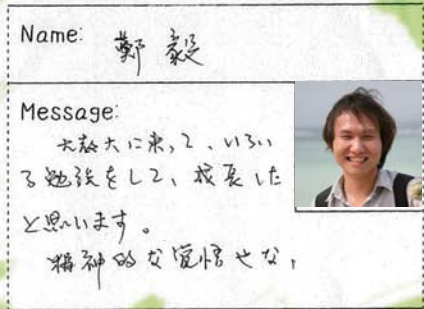 Name: 鄭 毅
Message:
大教大に来って、いろい
ろ勉強をして、成長した
と思います。
精神的な覚悟もな,